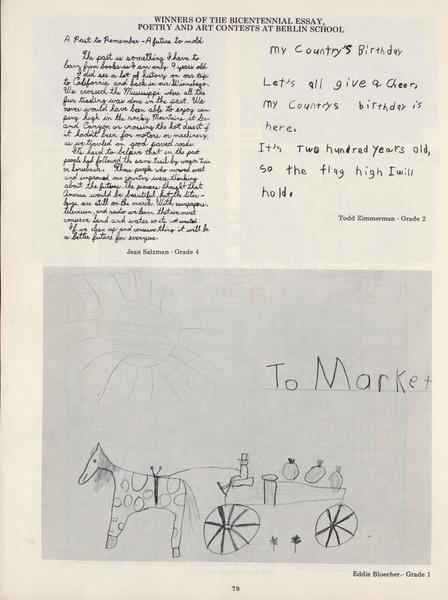 WINNERS OF THE BICENTENNIAL ESSAY,
POETRY AND ART CONTESTS AT BERLIN SCHOOL
A Past to Remember - A future to mold
The past is something I have to
learn from books as I am only 9 years old.
I did see a lot of history on our trip
to California and back in our Winnebago.
We crossed the Mississippi were all the
fur trading was done in the past. We
never would have been able to enjoy cam
ping high in the rocky Mountains, at
Canyon or crossing the hot desert if
it hadn't been for motors or machinery,
as we traveled on good paved roads.
It's hard to believe that in the past
people had followed the same trail by wagon train
or horseback. These people who moved west
and improved our country were thinking
about the future. the pioneers thought that
America would be beautiful but the
are still on the march. With newspapers,
television, and radio we learn that we must
conserve land and water so its not wasted.
If we clean up and conserve things it will be
a better future for everyone.
Jean Salzman - Grade 4
My Country's Birthday
Let's all give a Cheer,
my Countrys birthday is
here.
It's Two hundred years old,
so the flag high I will
hold.
Todd Zimmerman - Grade 2
To Market
Eddie Bloecher - Grade 1
78